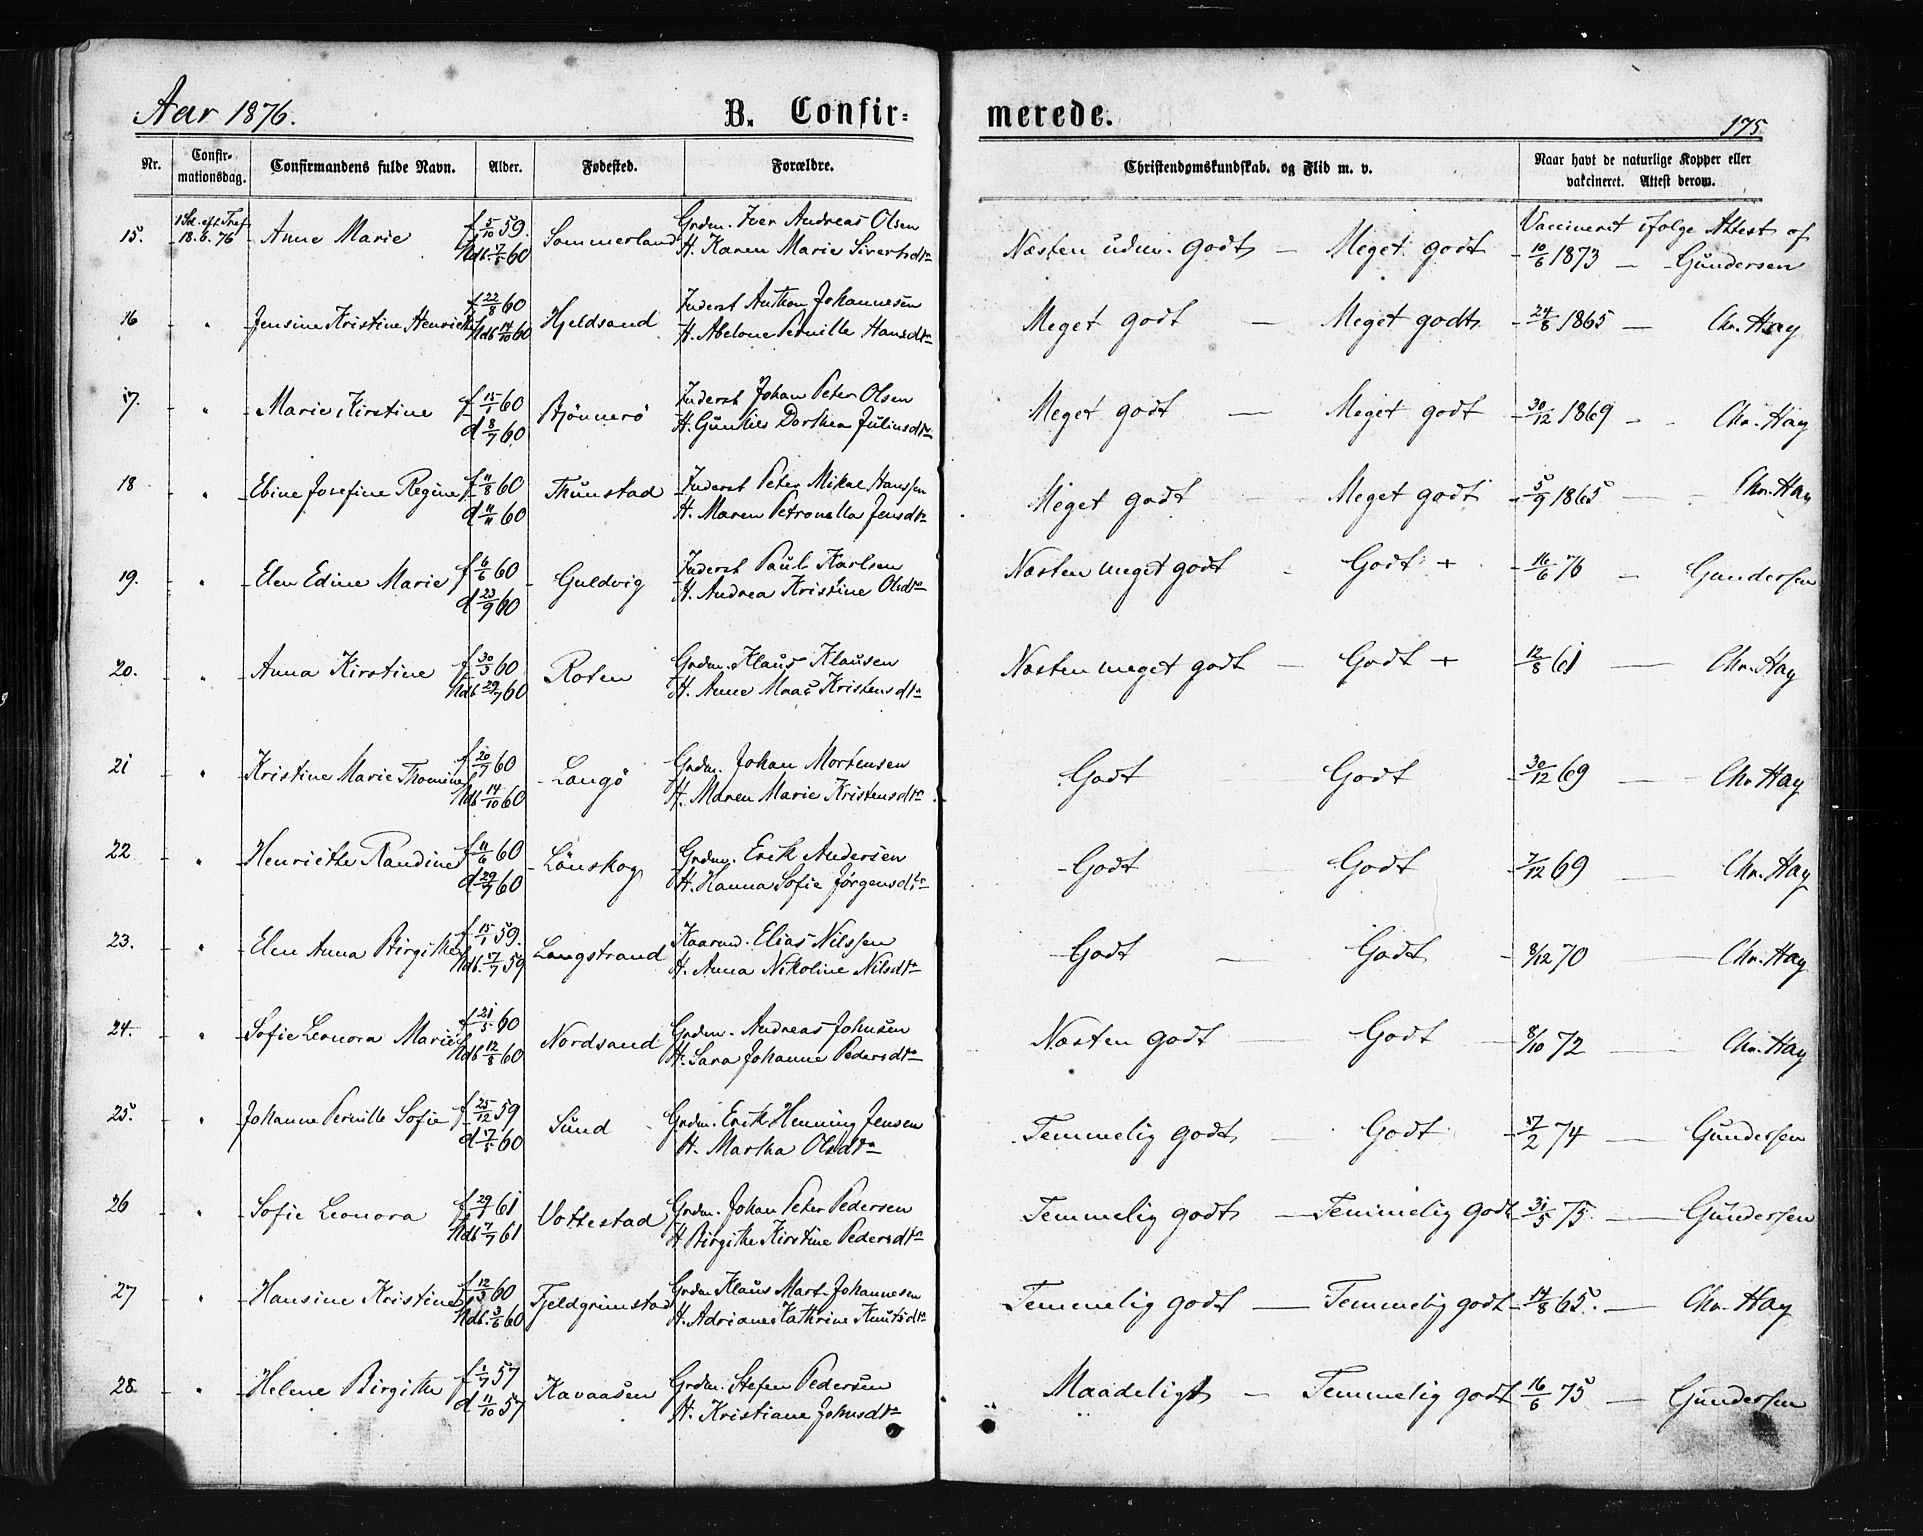 Aar 1876.
B. Confir=
merede.
175
Nr.
Confir-
mationsdag.
Confirmandens fulde Navn.
Alder.
Fødested.
Forældre.
Christendomskundskab. og Flid m. v.
Naar havt de naturlige Kopper eller
vakcineret. Attest derom.
15. 1 Sd. eft. Tref. 18.6.76 Anne Marie f 5/10 59. Sommerland Grdm. Iver Andreas Olsen
Ndb. 60 H. Karen Marie Sivertsdtr
Næsten udm. godt — Meget godt Vaccineret ifølge Attest af
10/6 1873 — Gundersen
16 " Jensine Kristine Henrichs f 22/8 60 Hjeldsand Inderst Anthon Johannesen
Ndb 14/10 60 H. Abelone Pernille Hansdtr
Meget godt — Meget godt 24/8 1865 — Chr. Hay
17. " Marie Kirstine f 15/1 60 Bjönnerö Inderst Johan Peter Olsen
d 8/7 60 H. Dorthea Juliusdtr
Meget godt — Meget godt 30/12 1869 - Chr. Hay
18 " Ebine Josefine Regine f 11/8 60 Thunstad Inderst Peter Mikal Hanssen
d 11/11 60 H. Maren Petronella Jensdtr
Meget godt — Meget godt 5/9 1865 — Chr. Hay
19. " Elen Edine Marie f 6/6 60 Guldvig Inderst Paul Karlsen
d 23/9 60 H. Andrea Kristine Olsdtr
Næsten meget godt - Godt + 16/6 76 — Gundersen
20. " Anna Kirstine f 30/3 60 Roten Grdm. Klaus Klausen
Ndb 29/7 60 H. Anne Maas Kristensdtr
Næsten meget godt — Godt + 12/8 61 — Chr. Hay
21 " Kristine Marie Thomine f 20/7 60 Langö Grdm. Johan Mortensen
Ndb 14/10 60 H. Maren Marie Kristensdtr
Godt Godt 30/12 69 — Chr Hay
22 " Henriethe Randine f 11/6 60 Lönskog Grdm. Erik Andersen
d 29/9 60 H. Hanna Sofie Jørgensdtr
Godt Godt 7/12 69 Chr. Hay
23. " Elen Anna Birgithe f 15/1 59. Langstrand Elias Nilssen
Ndb. 17/7 59 H. Anna Nikoline Nilsdtr
Godt — Godt 8/12 70 — Chr. Hay
24. " Sofie Leonora Marie f 21/5 60 Nordsand Grdm. Andreas Johnsen
Ndb 12/8 60 H. Sara Johanne Pedersdtr
Næsten godt — Godt 8/10 72 — Chr. Hay
25. " Johanne Pernille Sofie f 25/12 59 Sund Grdm. Erik Henning Jensen
d 60 H. Martha Olsdtr
Temmelig godt — Godt 17/2 74 — Gundersen
26 " Sofie Leonora f 29/1 61 Vottestad Grdm. Johan Peter Pedersen
Ndb 7/7 61 H Birgithe Kirstine Pedersdtr
Temmelig godt — Temmelig godt 31/5 75. — Gundersen
27 " Hansine Kristine f 12/3 60 Fjeldgrimstad Grdm Klaus Mart. Johannesen
Ndb. 3/6 60 H. Adriane Kathrine Knutsdtr
Temmelig godt — Temmelig godt 14/8 65. — Chr. Hay
28 " Helene Birgithe f 1/7 57 Kavaasen Grdm. Stefen Pedersen
d 11/10 57 H. Kristiane Johnsdtr
Maadeligt — Temmelig godt 16/6 75 — Gundersen